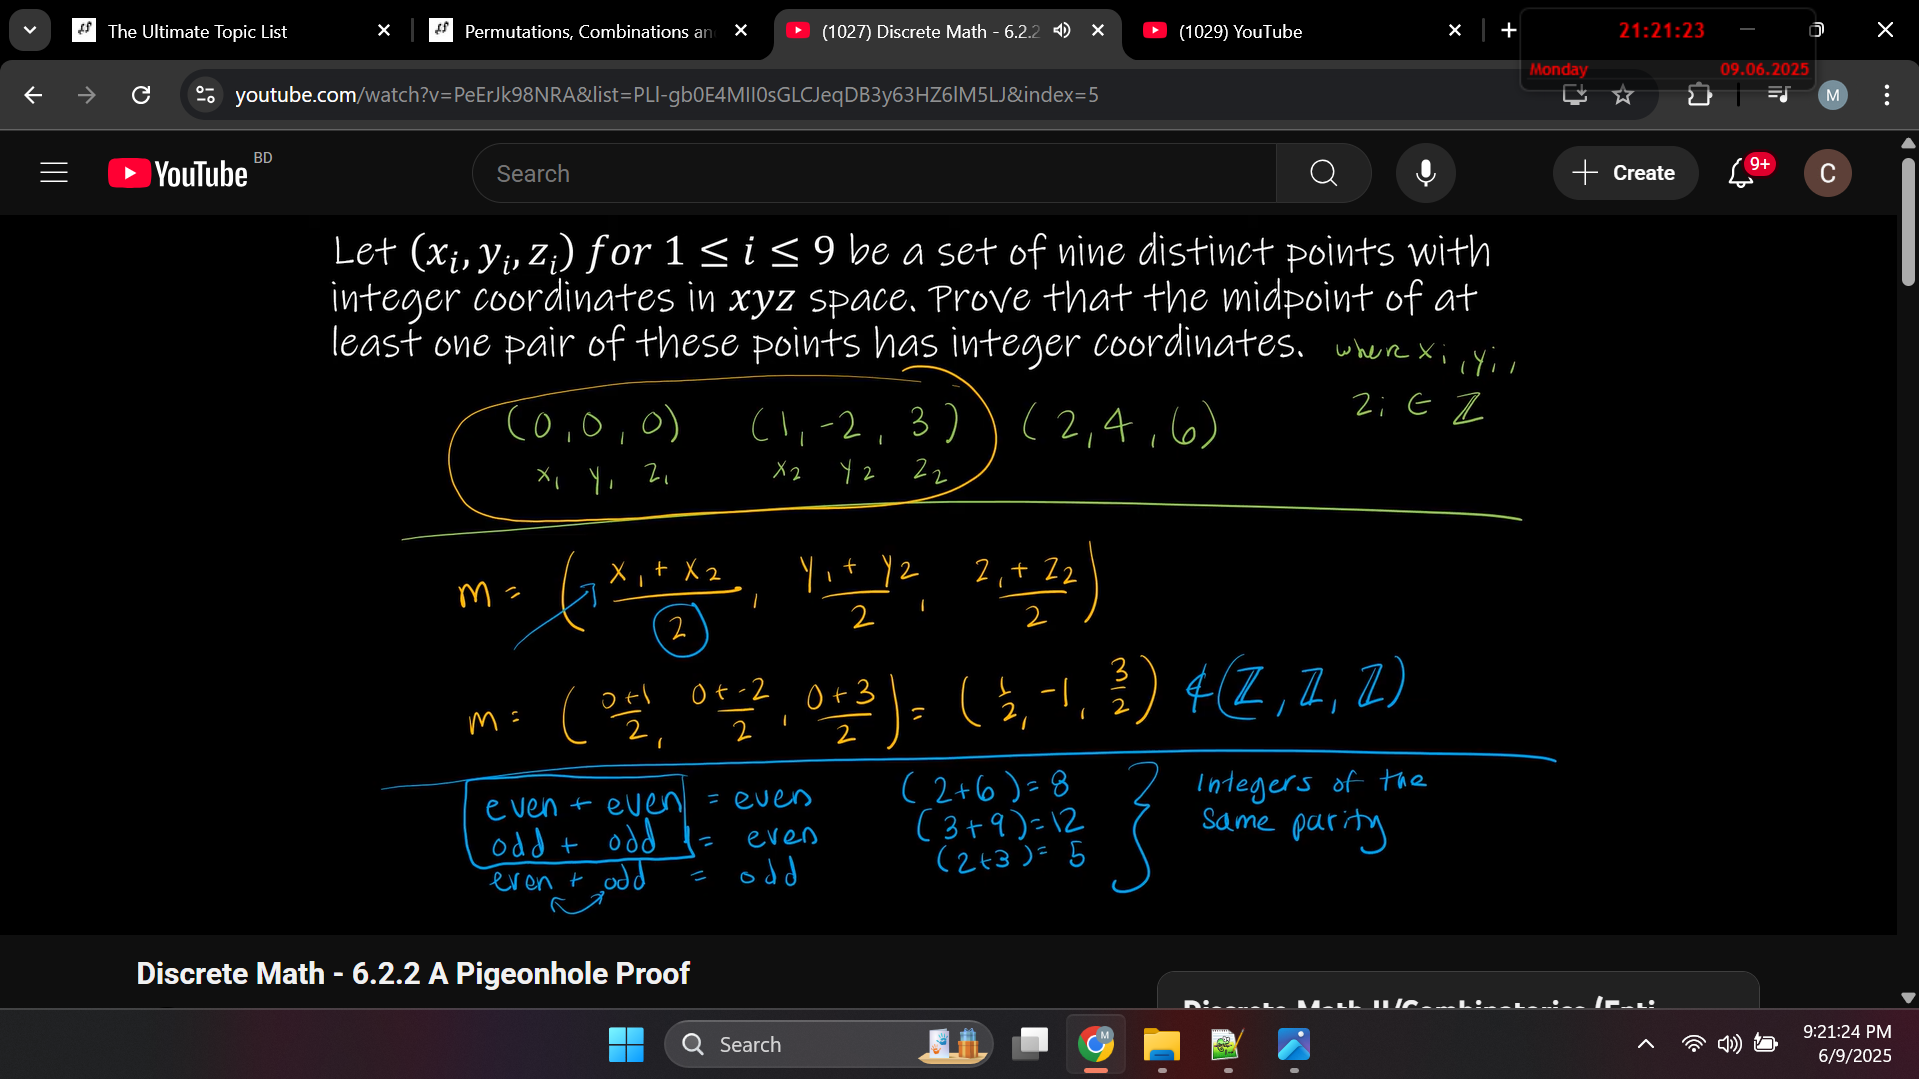 The Ultimate Topic List
Permutations, Combinations an
(1027) Discrete Math - 6.2.2
(1029) YouTube
21:21:23
Monday 09.06.2025
youtube.com/watch?v=PeErJk98NRA&list=PLl-gb0E4MII0sGLCJeqDB3y63HZ6lM5LJ&index=5
M
YouTube BD
Search
Create
9+
C
Let (xᵢ, yᵢ, zᵢ) for 1 ≤ i ≤ 9 be a set of nine distinct points with
integer coordinates in xyz space. Prove that the midpoint of at
least one pair of these points has integer coordinates.
where xᵢ, yᵢ,
zᵢ ∈ ℤ
(0,0,0) (1,-2,3) (2,4,6)
x₁ y₁ z₁ x₂ y₂ z₂
m = (x₁+x₂/2, y₁+y₂/2, z₁+z₂/2)
m = (0+1/2, 0+-2/2, 0+3/2) = (1/2, -1, 3/2) ∉ (ℤ, ℤ, ℤ)
even + even = even (2+6)=8 Integers of the
odd + odd = even (3+9)=12 same parity
even + odd = odd (2+3)= 5
Discrete Math - 6.2.2 A Pigeonhole Proof
Search
M
9:21:24 PM
6/9/2025